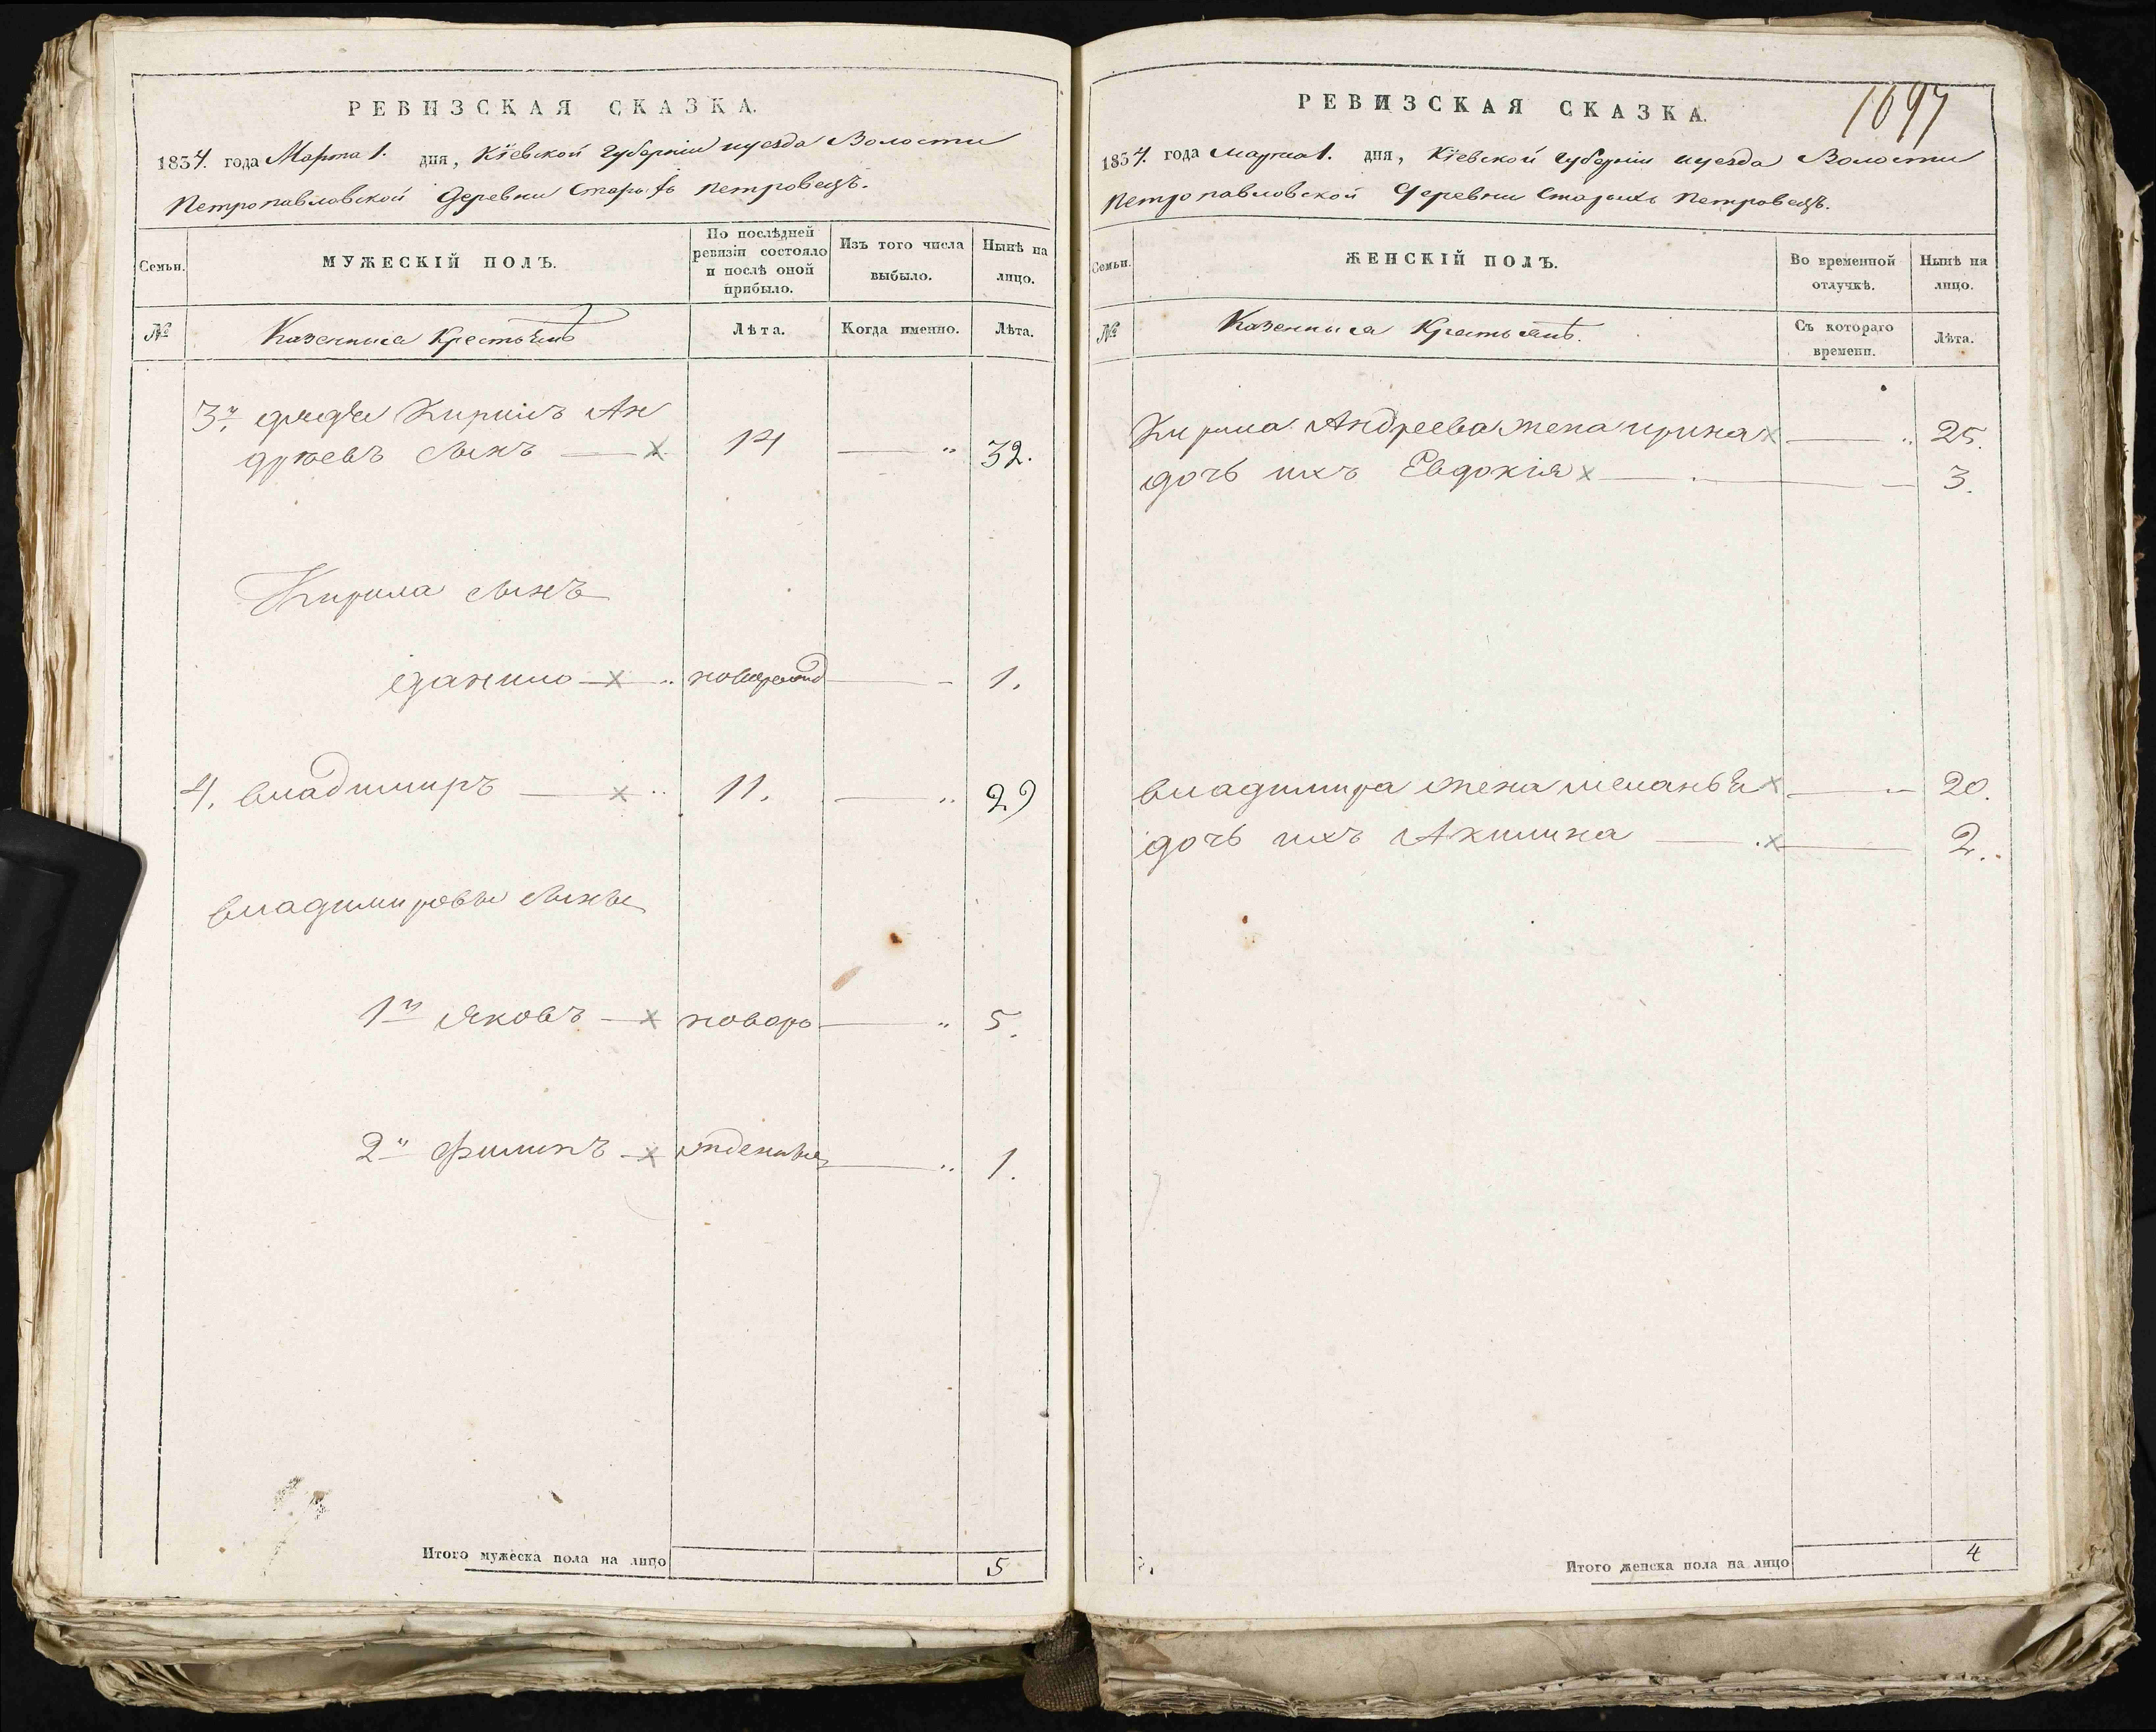 РЕВИЗСКАЯ СКАЗКА.
1834. года Марта 1. дня, Кіевской Губерніи и уезда Волости
Петропавловской Деревни Старыхъ Петровецъ.
Семьи.
МУЖЕСКІЙ ПОЛЪ.
По послѣдней ревизіи состояло и послѣ оной прибыло.
Изъ того числа выбыло.
Нынѣ на лицо.
№
Казенныхъ Крестьянъ
Лѣта.
Когда именно.
Лѣта.
3й дядя Кирилъ Ан
дрѣевъ сынъ — х 14 — „ 32.
Кирила сынъ
данило — х „ новорожд — 1.
4. владимиръ — х „ 11. — „ 29
владимировы сыны
1й Яковъ — х новоро — „ 5.
2й Филипъ — х жденные — „ 1.
Итого мужеска пола на лицо 5
РЕВИЗСКАЯ СКАЗКА.
1097
1834. года марта 1. дня, Кіевской Губерніи и уезда Волости
Петропавловской Деревни Старыхъ Петровецъ.
Семьи.
ЖЕНСКІЙ ПОЛЪ.
Во временной отлучкѣ.
Нынѣ на лицо.
№
Казенныхъ Крестьянъ.
Съ котораго времени.
Лѣта.
Кирила Андреева жена ирина х — „ 25.
дочь ихъ Евдокія х — 3.
владимира жена меланья х — „ 20.
дочь ихъ Акилина — х — 2.
Итого женска пола на лицо 4